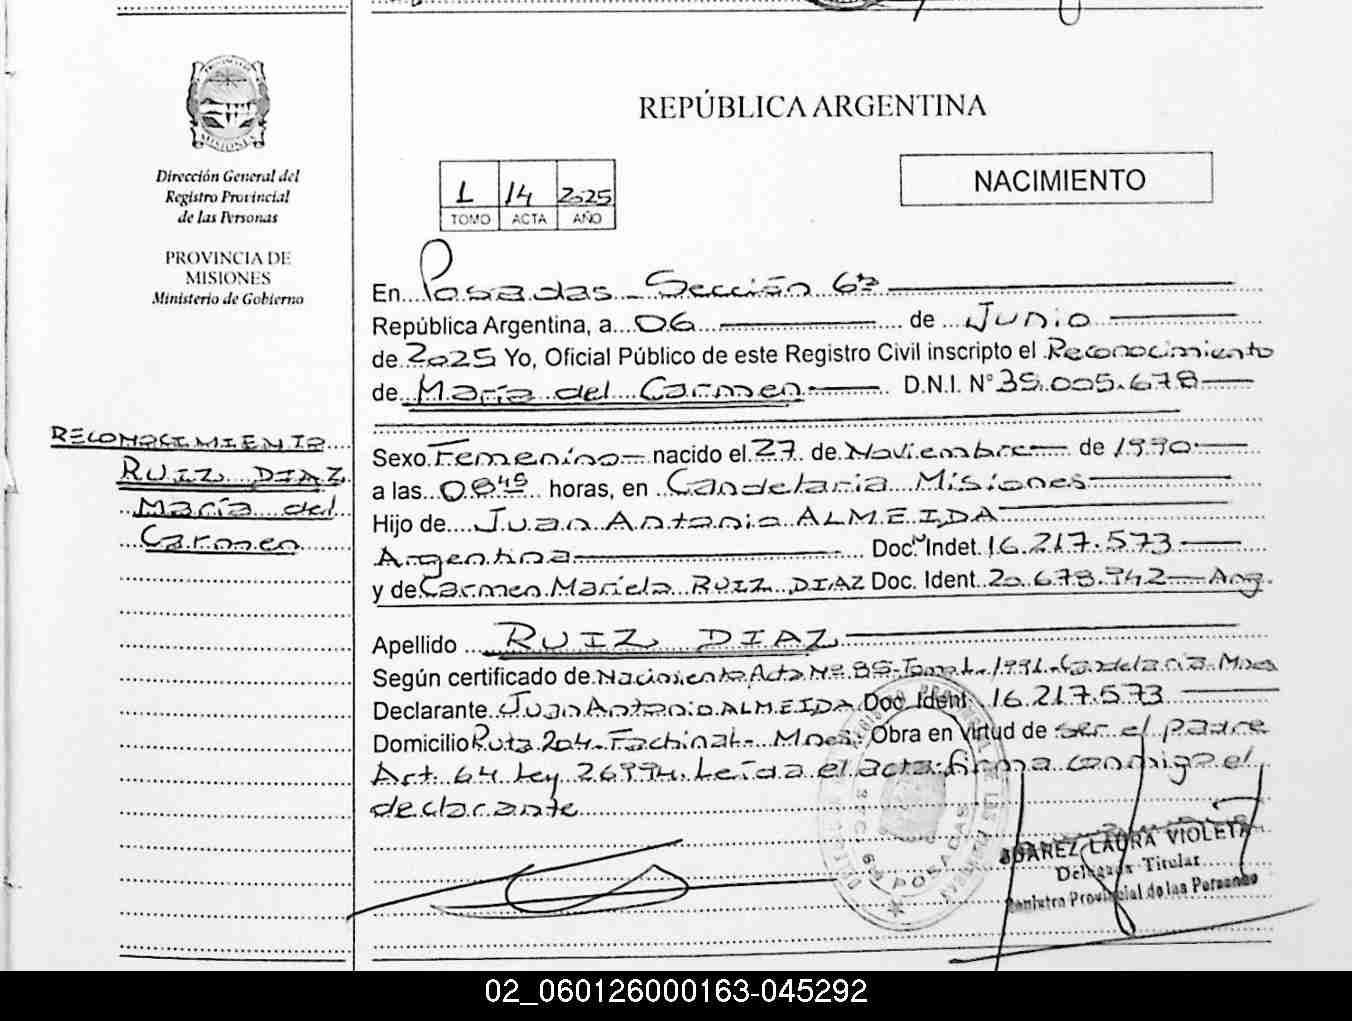 Dirección General del
Registro Provincial
de las Personas
PROVINCIA DE
MISIONES
Ministerio de Gobierno
RECONOCIMIENTO
RUIZ DIAZ
María del
Carmen
REPÚBLICA ARGENTINA
1 14 2025
TOMO ACTA AÑO
NACIMIENTO
En Posadas - Sección 6ª
República Argentina, a 06 de Junio
de 2025 Yo, Oficial Público de este Registro Civil inscripto el Reconocimiento
de María del Carmen D.N.I. N° 35.005.678
Sexo Femenino nacido el 27 de Noviembre de 1990
a las 08 45 horas, en Candelaria Misiones
Hijo de Juan Antonio ALMEIDA
Argentina Doc. Indet. 16.217.573
y de Carmen Mariela RUIZ DIAZ Doc. Ident. 20.678.942 - Arg.
Apellido RUIZ DIAZ
Según certificado de Nacimiento Acta Nº 85 - Tomo 1 - 1991 - Candelaria - Mnes
Declarante Juan Antonio ALMEIDA Doc Ident. 16.217.573
Domicilio Ruta 204 - Fachinal - Mnes. Obra en virtud de ser el padre
Art. 64 Ley 26994. Leída el acta firma conmigo el
declarante
JUAREZ LAURA VIOLETA
Delegada Titular
Registro Provincial de las Personas
02_060126000163-045292